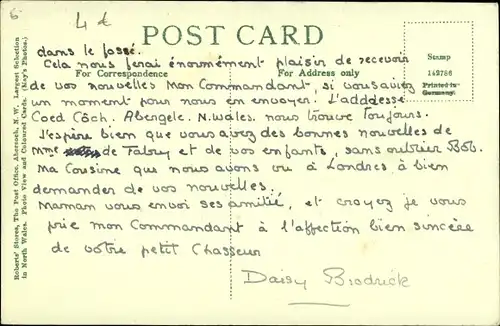 6
4 d
POST CARD
dans le fossé.
Cela nous ferai énormément plaisir de recevoir
For Correspondence
For Address only
Stamp
149786
Printed in
Germany.
de vos nouvelles Mon Commandant, si vous avez
un moment pour nous en envoyer. L'adddesse
Coed Côch. Abergele. N. Wales. nous trouve toujours.
J'espère bien que vous avez des bonnes nouvelles de
Mme de Fabry et de vos enfants, sans oublier Bob.
Ma Cousine que nous avons vu à Londres à bien
demander de vos nouvelles.
Maman vous envoi ses amitié, et croyez je vous
prie mon Commandant à l'affection bien sincère
de votre petit Chasseur
Daisy Brodrick
Roberts' Stores, The Post Office, Abersoch, N.W. Largest Selection
in North Wales. Photo View and Coloured Cards. (May's Photos.)